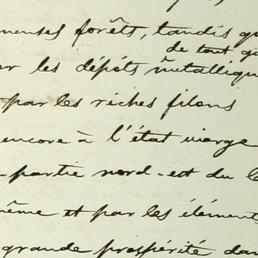 menses forêts, tandis qu
de tout qu
r les dépôts métallique
par les riches filons
encore à l'état vierge
partie nord-est du l
même et par les élément
grande prospérité dan